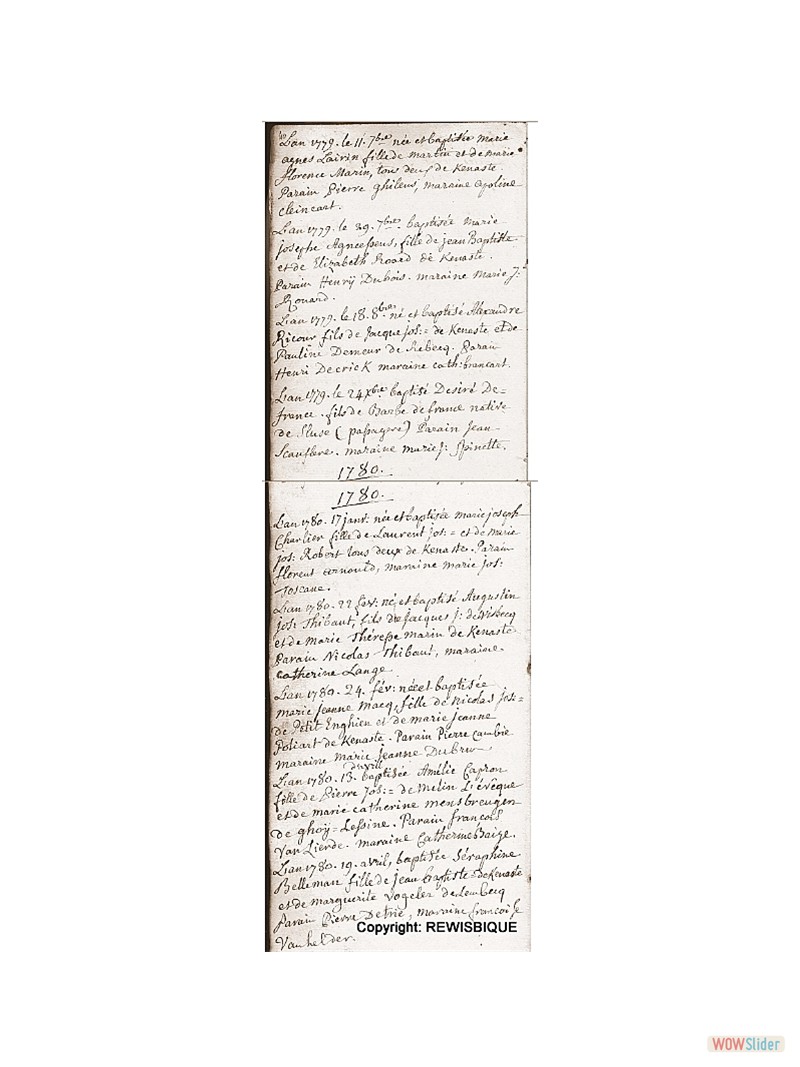 L'an 1779. le 11. 7bre née et baptisée marie
agnes Lairin fille de martin et de marie
florence Marin, tous deux de Kenaste.
Parain Pierre ghilens, maraine apoline
cleincart.
L'an 1779. le 29. 7bre baptisée marie
josephe Agneessens, fille de jean Baptiste
et de Elizabeth Roard de Kenaste.
Parain Henrÿ Dubois. maraine marie J:
Rouard.
L'an 1779. le 18. 8bre né et baptisé Alexandre
Ricour fils de Jacque jos:= de Kenaste et de
Pauline Demeur de Rebecq. Parain
Henri Decrick maraine cath: brancart.
L'an 1779. le 24 xbre baptisé Desiré De=
france. fils de Barbe de france native
de Sluse (passagere) Parain Jean
Scauflere. maraine marie J: Spinette.
1780.
1780.
L'an 1780. 17 janv: née et baptisée marie joseph
Charlier fille de Laurent jos:= et de marie
jos: Robert tous deux de Kenaste. Parain
florent arnould, maraine marie jos:
Toscane.
L'an 1780. 22 fev: né et baptisé Augustin
jos: Thibaut, fils de Jacques j: de Wisbecq
et de marie Thérèse marin de Kenaste
Parain Nicolas Thibaut, maraine
catherine Lange
L'an 1780. 24. fév: née et baptisée
marie jeanne macq, fille de Nicolas jos:=
de Petit Enghien et de marie jeanne
Poliart de Kenaste. Parain Pierre cambie
maraine marie jeanne Dubrux
d'avril
L'an 1780. 13. baptisée Amélie Capron
fille de Pierre Jos:= de Melin L'évêque
et de marie catherine mensbreugen
de ghoÿ=Lessine. Parain francois
Van Lierde. maraine Catherine baize.
L'an 1780. 19. avril, baptisée Séraphine
Belleman fille de jean baptiste de Kenaste
et de marguerite Vogeler de Lembecq
Parain Pierre Detrie, maraine francoise
Vanhelder.
Copyright: REWISBIQUE
WOWSlider